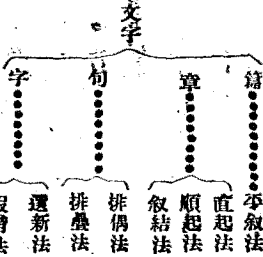 文字
篇
章
句
字
平叙法
直起法
順起法
叙結法
排偶法
排疊法
選新法
假借法